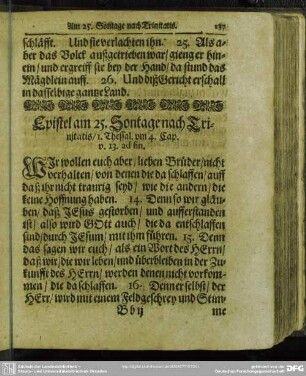 Am 25. Sontage nach Trinitatis. 187
schläfft. Und sie verlachten ihn. 25. Als a-
ber das Volck außgetrieben war/ gieng er hin-
ein/ und ergreiff sie bey der Hand/ da stund das
Mägdlein auff. 26. Und diß Gerücht erschall
in dasselbige gantze Land.
Epistel am 25. Sontage nach Tri-
nitatis/ 1. Thessal. vm 4. Cap.
v. 13. ad fin.
WIr wollen euch aber/ lieben Brüder/ nicht
verhalten/ von denen die da schlaffen/ auff
daß ihr nicht traurig seyd/ wie die andern/ die
keine Hoffnung haben. 14. Denn so wir gläu-
ben/ daß JEsus gestorben/ und aufferstanden
ist/ also wird GOtt auch/ die da entschlaffen
sind/ durch JEsum/ mit ihm führen. 15. Denn
das sagen wir euch/ als ein Wort des HErrn/
daß wir/ die wir leben/ und überbleiben in der Zu-
kunfft des HErrn/ werden denen nicht vorkom-
men/ die da schlaffen. 16. Denn er selbst/ der
HErr/ wird mit einem Feldgeschrey und Stim-
B b ij me
Deutsche Forschungsgemeinschaft
DFG